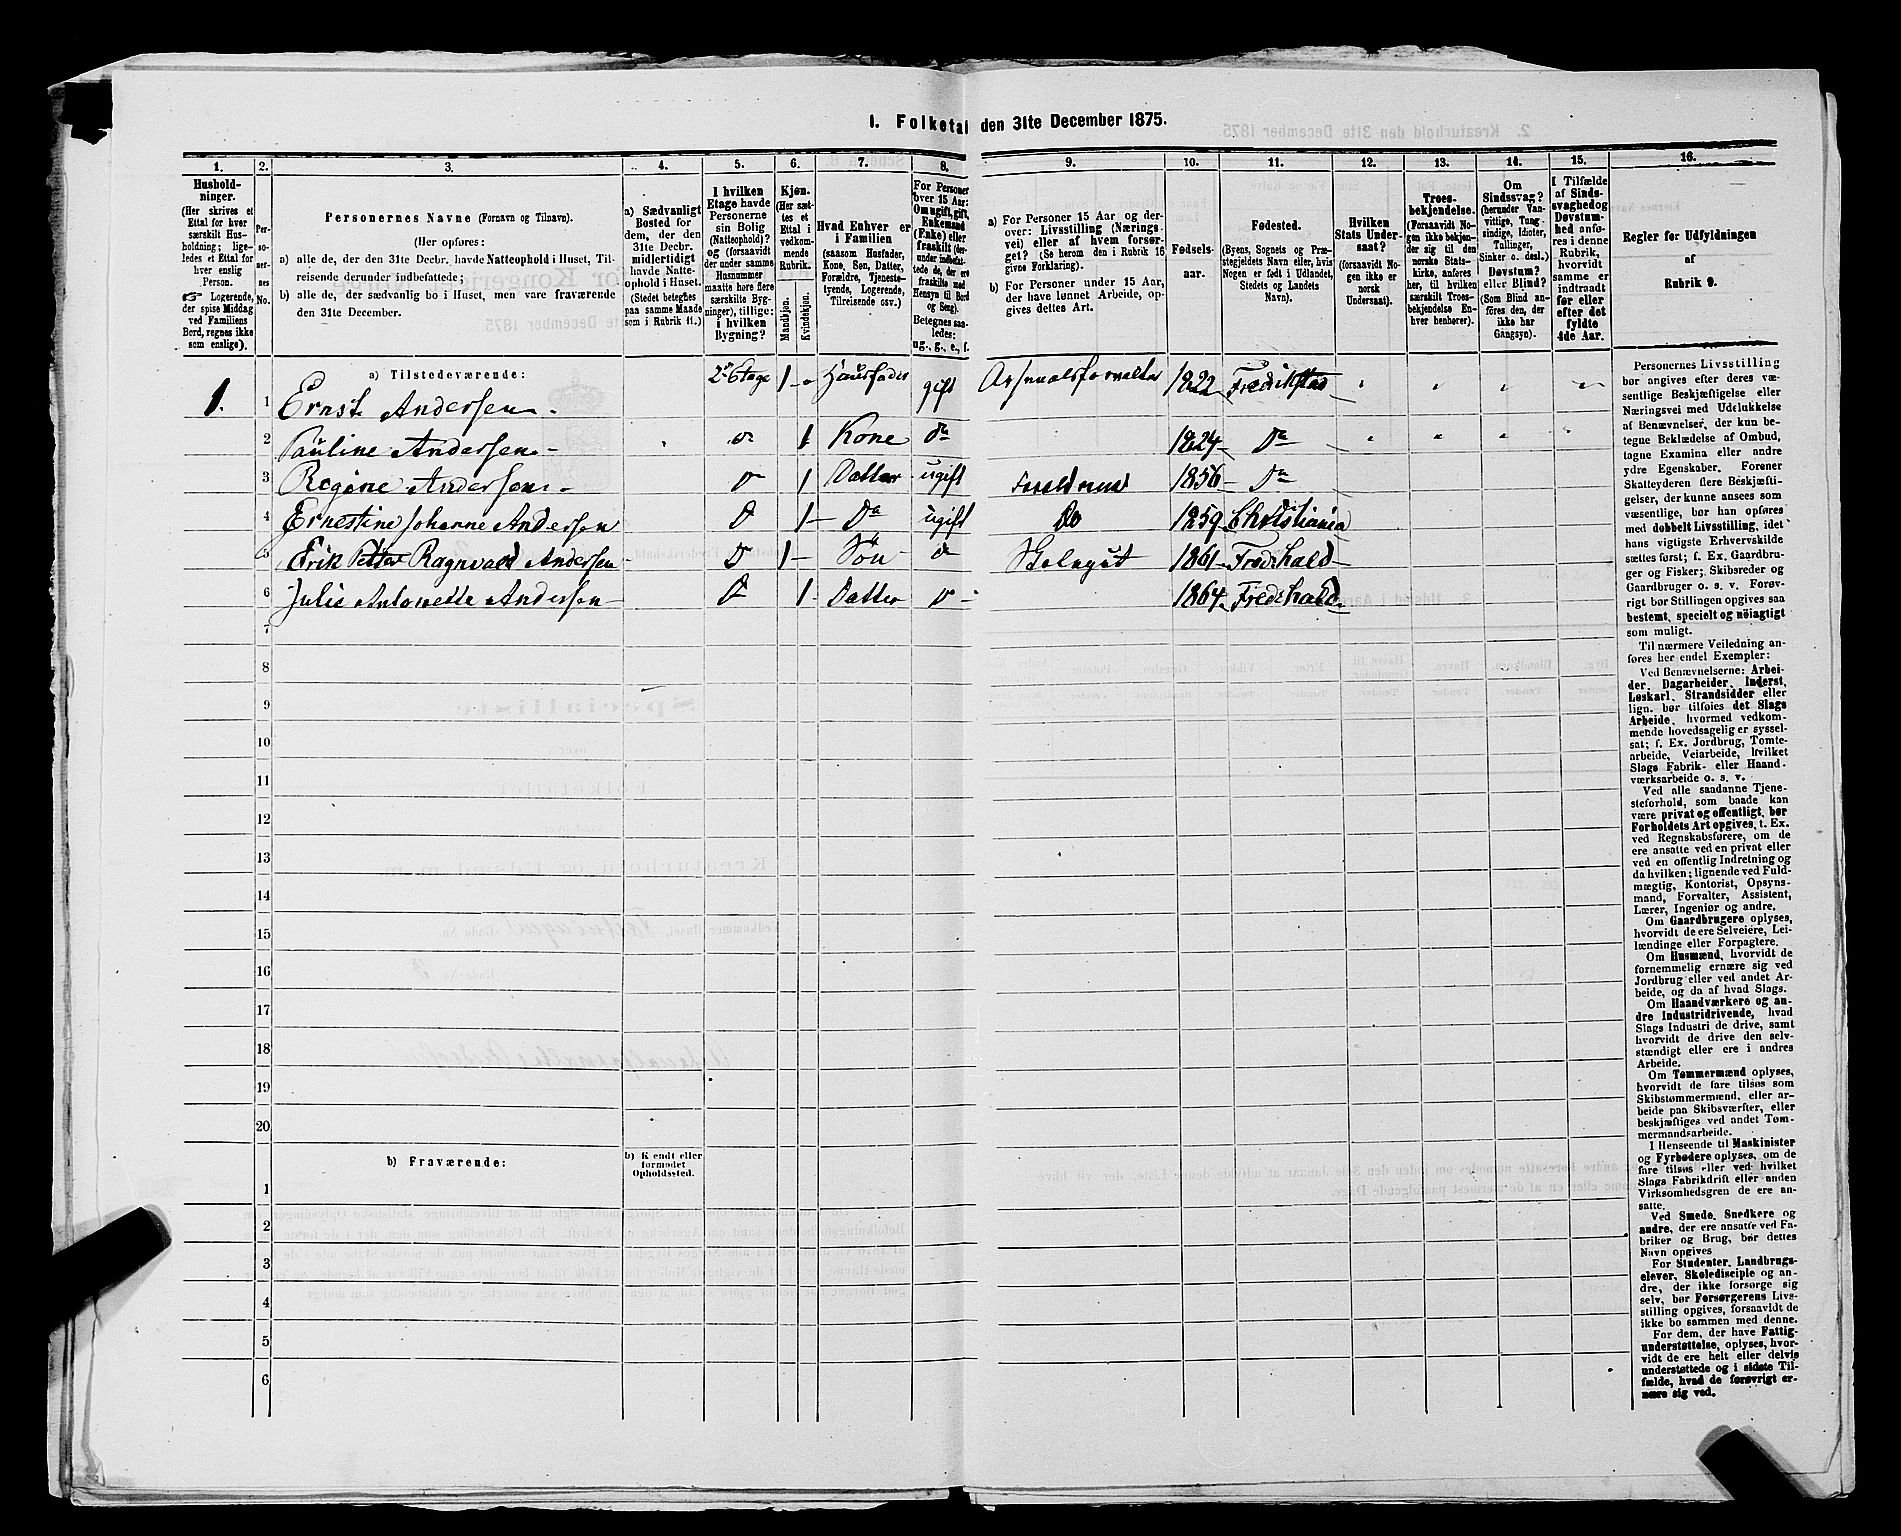 1. Folketal den 31te December 1875.
1. 2. 3. 4. 5. 6. 7. 8. 9. 10. 11. 12. 13. 14. 15. 16.
Hushold-
ninger.
(Her skrives et
Ettal for hver
særskilt Hus-
holdning; lige-
ledes et Ettal for
hver enslig
Person.
☞ Logerende,
der spise Middag
ved Familiens
Bord, regnes ikke
som enslige).
Per-
so-
ner-
nes
No.
Personernes Navne (Fornavn og Tilnavn).
(Her opføres:
a) alle de, der den 31te Decbr. havde Natteophold i Huset, Til-
reisende derunder indbefattede;
b) alle de, der sædvanlig bo i Huset, men vare fraværende
den 31te December.
a) Sædvanligt
Bosted for
dem, der den
31te Decbr.
midlertidigt
havde Natte-
ophold i Huset.
(Stedet betegnes
paa samme Maade
som i Rubrik 11.)
I hvilken
Etage havde
Personerne
sin Bolig
(Natteophold)?
og (forsaavidt
der under samme
Husnummer
maatte høre flere
særskilte Byg-
ninger), tillige:
i hvilken
Bygning?
Kjøn.
(Her sæt-
tes et
Ettal i
vedkom-
mende
Rubrik.
Mandkjøn.
Kvindekjøn.
Hvad Enhver er
i Familien
(saasom Husfader,
Kone, Søn, Datter,
Forældre, Tjeneste-
tyende, Logerende,
Tilreisende osv.)
For Personer
over 15 Aar:
Om ugift, gift,
Enkemand
(Enke) eller
fraskilt (der-
under indbefat-
tede de, der ere
fraskilte med
Hensyn til Bord
og Seng).
Betegnes saa-
ledes:
ug., g., e., f.
a) For Personer 15 Aar og der-
over: Livsstilling (Nærings-
vei) eller af hvem forsør-
get? (Se herom den i Rubrik 16
givne Forklaring).
b) For Personer under 15 Aar,
der have lønnet Arbeide, op-
gives dettes Art.
Fødsels-
aar.
Fødested.
(Byens, Sognets og Præ-
stegjeldets Navn eller, hvis
Nogen er født i Udlandet,
Stedets og Landets
Navn).
Hvilken
Stats Under-
saat?
(forsaavidt No-
gen ikke er
norsk
Undersaat).
Troes-
bekjendelse.
(Forsaavidt No-
gen ikke bekjen-
der sig til den
norske Stats-
kirke, anføres
her, til hvilken
særskilt Troes-
bekjendelse En-
hver henhører).
Om
Sindssvag?
(herunder Van-
vittige, Tung-
sindige, Idioter,
Tullinger,
Sinker o. desl.)
Døvstum?
eller Blind?
(Som Blind an-
føres den, der
ikke har
Gangsyn).
I Tilfælde
af Sinds-
svaghed og
Døvstum-
hed anfø-
res i denne
Rubrik,
hvorvidt
samme er
indtraadt
før eller
efter det
fyldte
4de Aar.
Regler for Udfyldningen
af
Rubrik 9.
a) Tilstedeværende:
1. 1 Ernst Andersen. 2n Etage 1 Huusfader gift Arsenalsforvalter 1822 Fredrikstad
2 Pauline Andersen 1 Kone do 1824 Do
3 Regine Andersen 1 Datter ugift 1856 Do
4 Ernestine Johanne Andersen 1 Do ugift Do 1859 Christiania
5 Erik Petter Ragnvald Andersen 1 Søn do 1861 Fredrhald
6 Julie Antonette Andersen 1 Datter 1864 Fredrhald
7
8
9
10
11
12
13
14
15
16
17
18
19
20
b) Fraværende:
b) Kendt eller
formodet
Opholdssted.
1
2
3
4
5
6
Personernes Livsstilling
bør angives efter deres væ-
sentlige Beskjæftigelse eller
Næringsvei med Udelukkelse
af Benævnelser, der kun be-
tegne Beklædelse af Ombud,
tagne Examina eller andre
ydre Egenskaber. Forener
Skatteyderen flere Beskjæfti-
gelser, der kunne ansees som
væsentlige, bør han opføres
med dobbelt Livsstilling, idet
hans vigtigste Erhvervskilde
sættes først; f. Ex. Gaardbru-
ger og Fisker; Skibsreder og
Gaardbruger o. s. v. Forøv-
rigt bør Stillingen opgives saa
bestemt, specielt og nøiagtigt
som muligt.
Til nærmere Veiledning an-
føres her endel Exempler:
Ved Benævnelserne: Arbei-
der, Dagarbeider, Inderst,
Løskarl, Strandsidder eller
lign. bør tilføies det Slags
Arbeide, hvormed vedkom-
mende hovedsagelig er syssel-
sat; f. Ex. Jordbrug, Tomte-
arbeide, Veiarbeide, hvilket
Slags Fabrik- eller Haand-
værksarbeide o. s. v.
Ved alle saadanne Tjene-
steforhold, som baade kan
være privat og offentligt, bør
Forholdets Art opgives, t. Ex.
ved Regnskabsførere, om de
ere ansatte ved en privat eller
ved en offentlig Indretning og
da hvilken; lignende ved Fuld-
mægtig, Kontorist, Opsyns-
mand, Forvalter, Assistent,
Lærer, Ingeniør og andre.
Om Gaardbrugere oplyses,
hvorvidt de ere Selveiere, Lei-
lændinge eller Forpagtere.
Om Husmænd, hvorvidt de
fornemmelig ernære sig ved
Jordbrug eller ved andet Ar-
beide, og da af hvad Slags.
Om Haandværkere og an-
dre Industridrivende, hvad
Slags Industri de drive, samt
hvorvidt de drive den selv-
stændigt eller ere i andres
Arbeide.
Om Tømmermænd oplyses,
hvorvidt de fare tilsøs som
Skibstømmermænd, eller ar-
beide paa Skibsværfter, eller
beskjæftiges ved andet Tøm-
mermandsarbeide.
I Henseende til Maskinister
og Fyrbødere oplyses, om de
fare tilsøs eller ved hvilket
Slags Fabrikdrift eller anden
Virksomhedsgren de ere an-
satte.
Ved Smede, Snedkere og
andre, der ere ansatte ved Fa-
briker og Brug, bør dettes
Navn opgives
For Studenter, Landbrugs-
elever, Skoledisciple og an-
dre, der ikke forsørge sig
selv, bør Forsørgerens Livs-
stilling opgives, forsaavidt de
ikke bo sammen med denne.
For dem, der have Fattig-
understøttelse, oplyses, hvor-
vidt de ere helt eller delvis
understøttede og i sidste Til-
fælde, hvad de forøvrigt er-
nære sig ved.